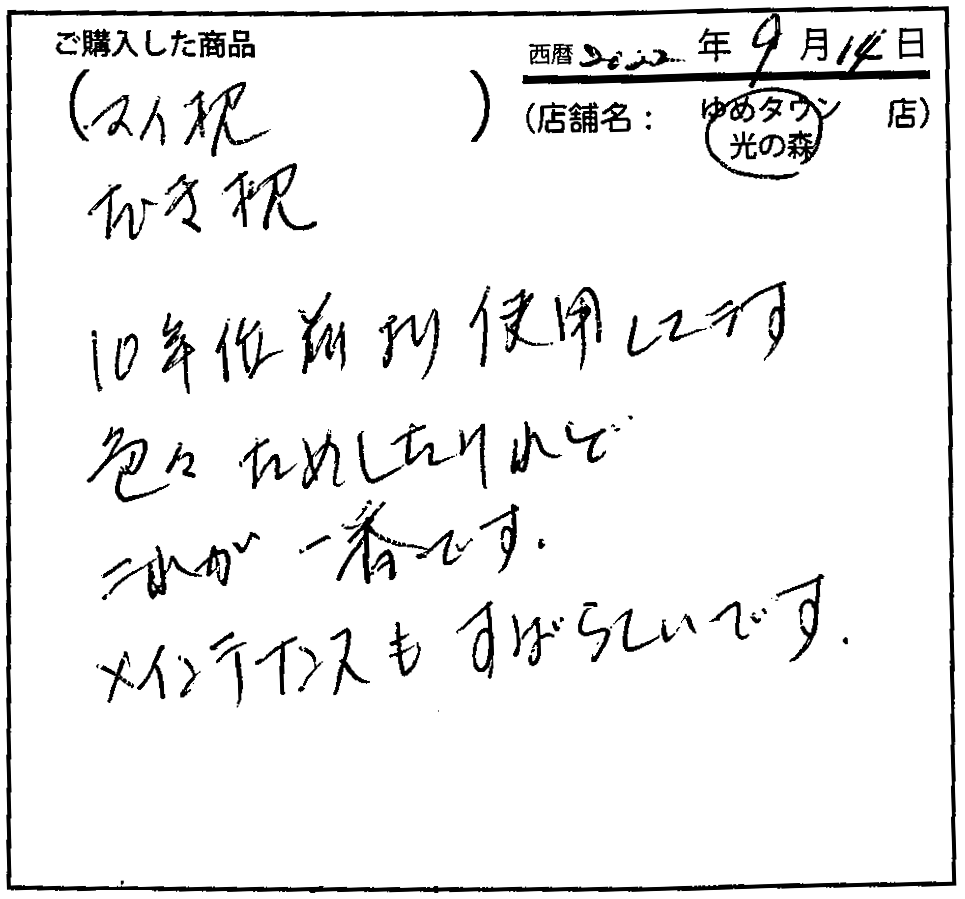 ご購入した商品
西暦 2022 年 9 月 14 日
(マイ枕)
(店舗名： ゆめタウン 光の森 店)
だき枕
10年位前より使用してます
色々ためしたけれど
これが一番です.
メインテナンスもすばらしいです.